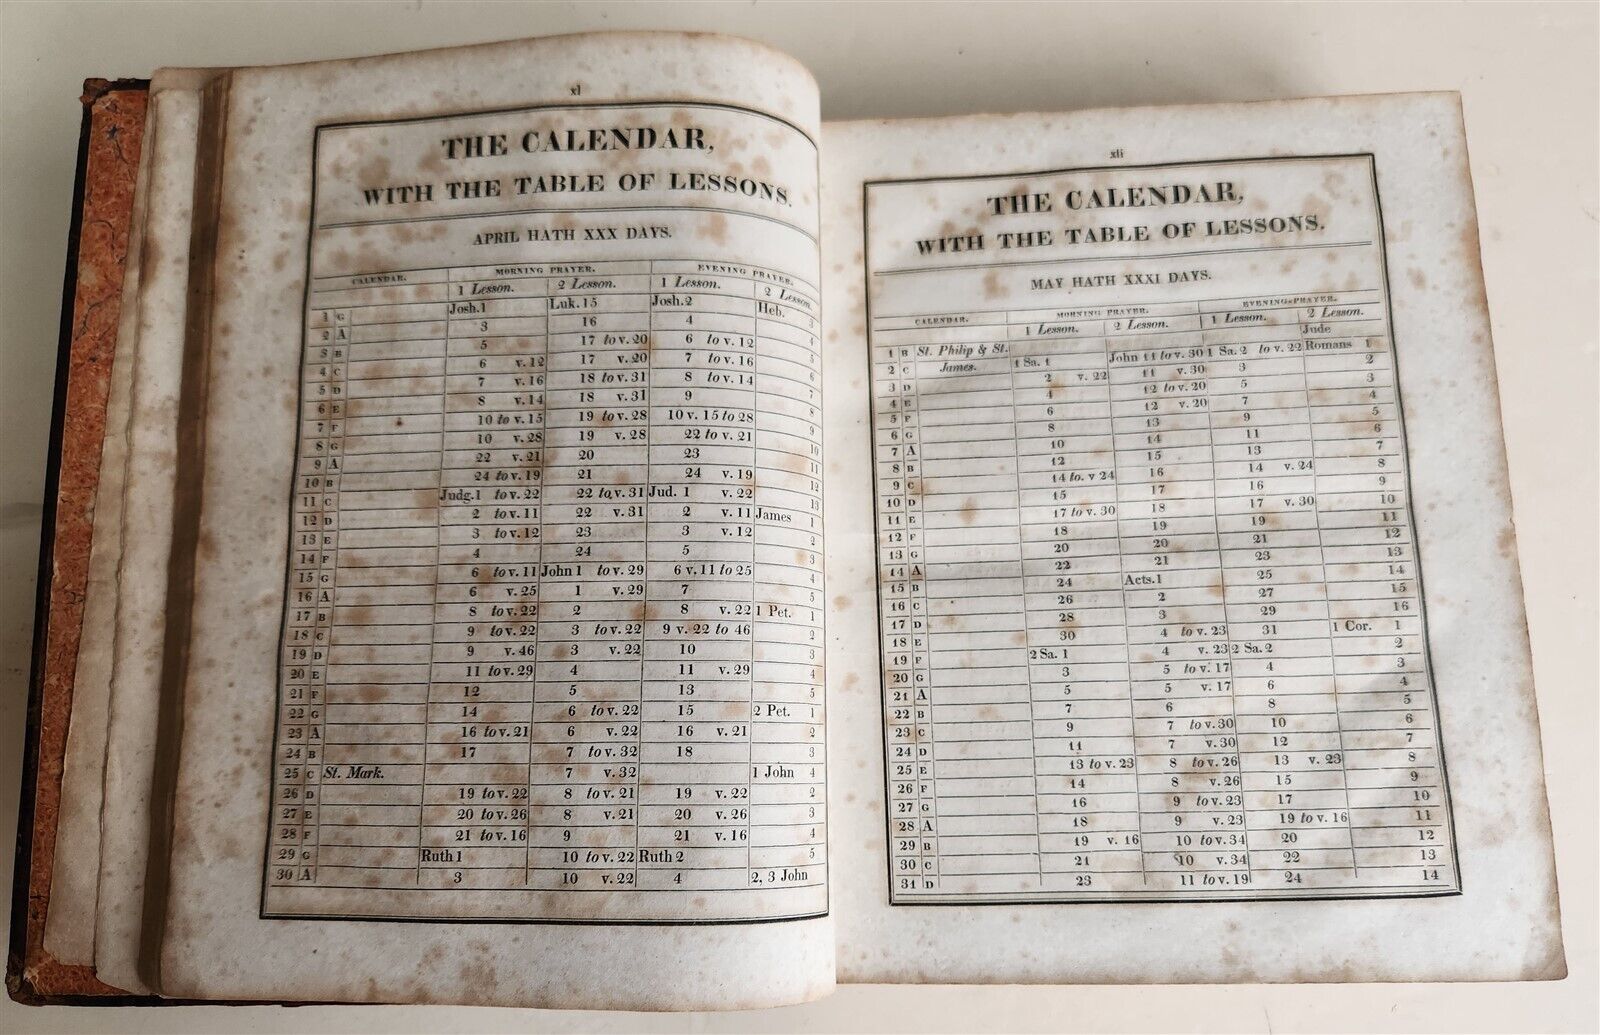 xl
THE CALENDAR,
WITH THE TABLE OF LESSONS.
APRIL HATH XXX DAYS.
CALENDAR. MORNING PRAYER. EVENING PRAYER.
1 Lesson. 2 Lesson. 1 Lesson. 2 Lesson.
1 G Josh.1 Luk.15 Josh.2 Heb. 3
2 A 3 16 4 4
3 B 5 17 to v.20 6 to v.12 5
4 C 6 v.12 17 v.20 7 to v.16 6
5 D 7 v.16 18 to v.31 8 to v.14 7
6 E 8 v.14 18 v.31 9 8
7 F 10 to v.15 19 to v.28 10 v.15 to 28 9
8 G 10 v.28 19 v.28 22 to v.21 10
9 A 22 v.21 20 23 11
10 B 24 to v.19 21 24 v.19 12
11 C Judg.1 to v.22 22 to v.31 Jud. 1 v.22 13
12 D 2 to v.11 22 v.31 2 v.11 James 1
13 E 3 to v.12 23 3 v.12 2
14 F 4 24 5 3
15 G 6 to v.11 John 1 to v.29 6 v.11 to 25 4
16 A 6 v.25 1 v.29 7 5
17 B 8 to v.22 2 8 v.22 1 Pet.
18 C 9 to v.22 3 to v.22 9 v.22 to 46 2
19 D 9 v.46 3 v.22 10 3
20 E 11 to v.29 4 11 v.29 4
21 F 12 5 13 5
22 G 14 6 to v.22 15 2 Pet. 1
23 A 16 to v.21 6 v.22 16 v.21 2
24 B 17 7 to v.32 18 3
25 C St. Mark. 7 v.32 1 John 4
26 D 19 to v.22 8 to v.21 19 v.22 2
27 E 20 to v.26 8 v.21 20 v.26 3
28 F 21 to v.16 9 21 v.16 4
29 G Ruth 1 10 to v.22 Ruth 2 5
30 A 3 10 v.22 4 2, 3 John
xli
THE CALENDAR,
WITH THE TABLE OF LESSONS.
MAY HATH XXXI DAYS.
CALENDAR. MORNING PRAYER. EVENING PRAYER.
1 Lesson. 2 Lesson. 1 Lesson. 2 Lesson.
1 B St. Philip & St. Jude
2 C James. 1 Sa. 1 John 11 to v.30 1 Sa. 2 to v.22 Romans 1
3 D 2 v.22 11 v.30 3 2
4 E 4 12 to v.20 5 3
5 F 6 12 v.20 7 4
6 G 8 13 9 5
7 A 10 14 11 6
8 B 12 15 13 7
9 C 14 to. v 24 16 14 v.24 8
10 D 15 17 16 9
11 E 17 to v.30 18 17 v.30 10
12 F 18 19 19 11
13 G 20 20 21 12
14 A 22 21 23 13
15 B 24 Acts.1 25 14
16 C 26 2 27 15
17 D 28 3 29 16
18 E 30 4 to v.23 31 1 Cor. 1
19 F 2 Sa. 1 4 v.23 2 Sa. 2 2
20 G 3 5 to v.17 4 3
21 A 5 5 v.17 6 4
22 B 7 6 8 5
23 C 9 7 to v.30 10 6
24 D 11 7 v.30 12 7
25 E 13 to v.23 8 to v.26 13 v.23 8
26 F 14 8 v.26 15 9
27 G 16 9 to v.23 17 10
28 A 18 9 v.23 19 to v.16 11
29 B 19 v.16 10 to v.34 20 12
30 C 21 10 v.34 22 13
31 D 23 11 to v.19 24 14